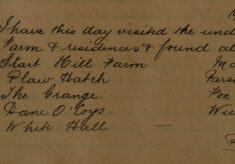 I have this day visited the und
Farm & residences & found al
Start Hill Farm
Plaw Hatch Pars
The Grange. Fox
Dane O'Coys.
White Hall